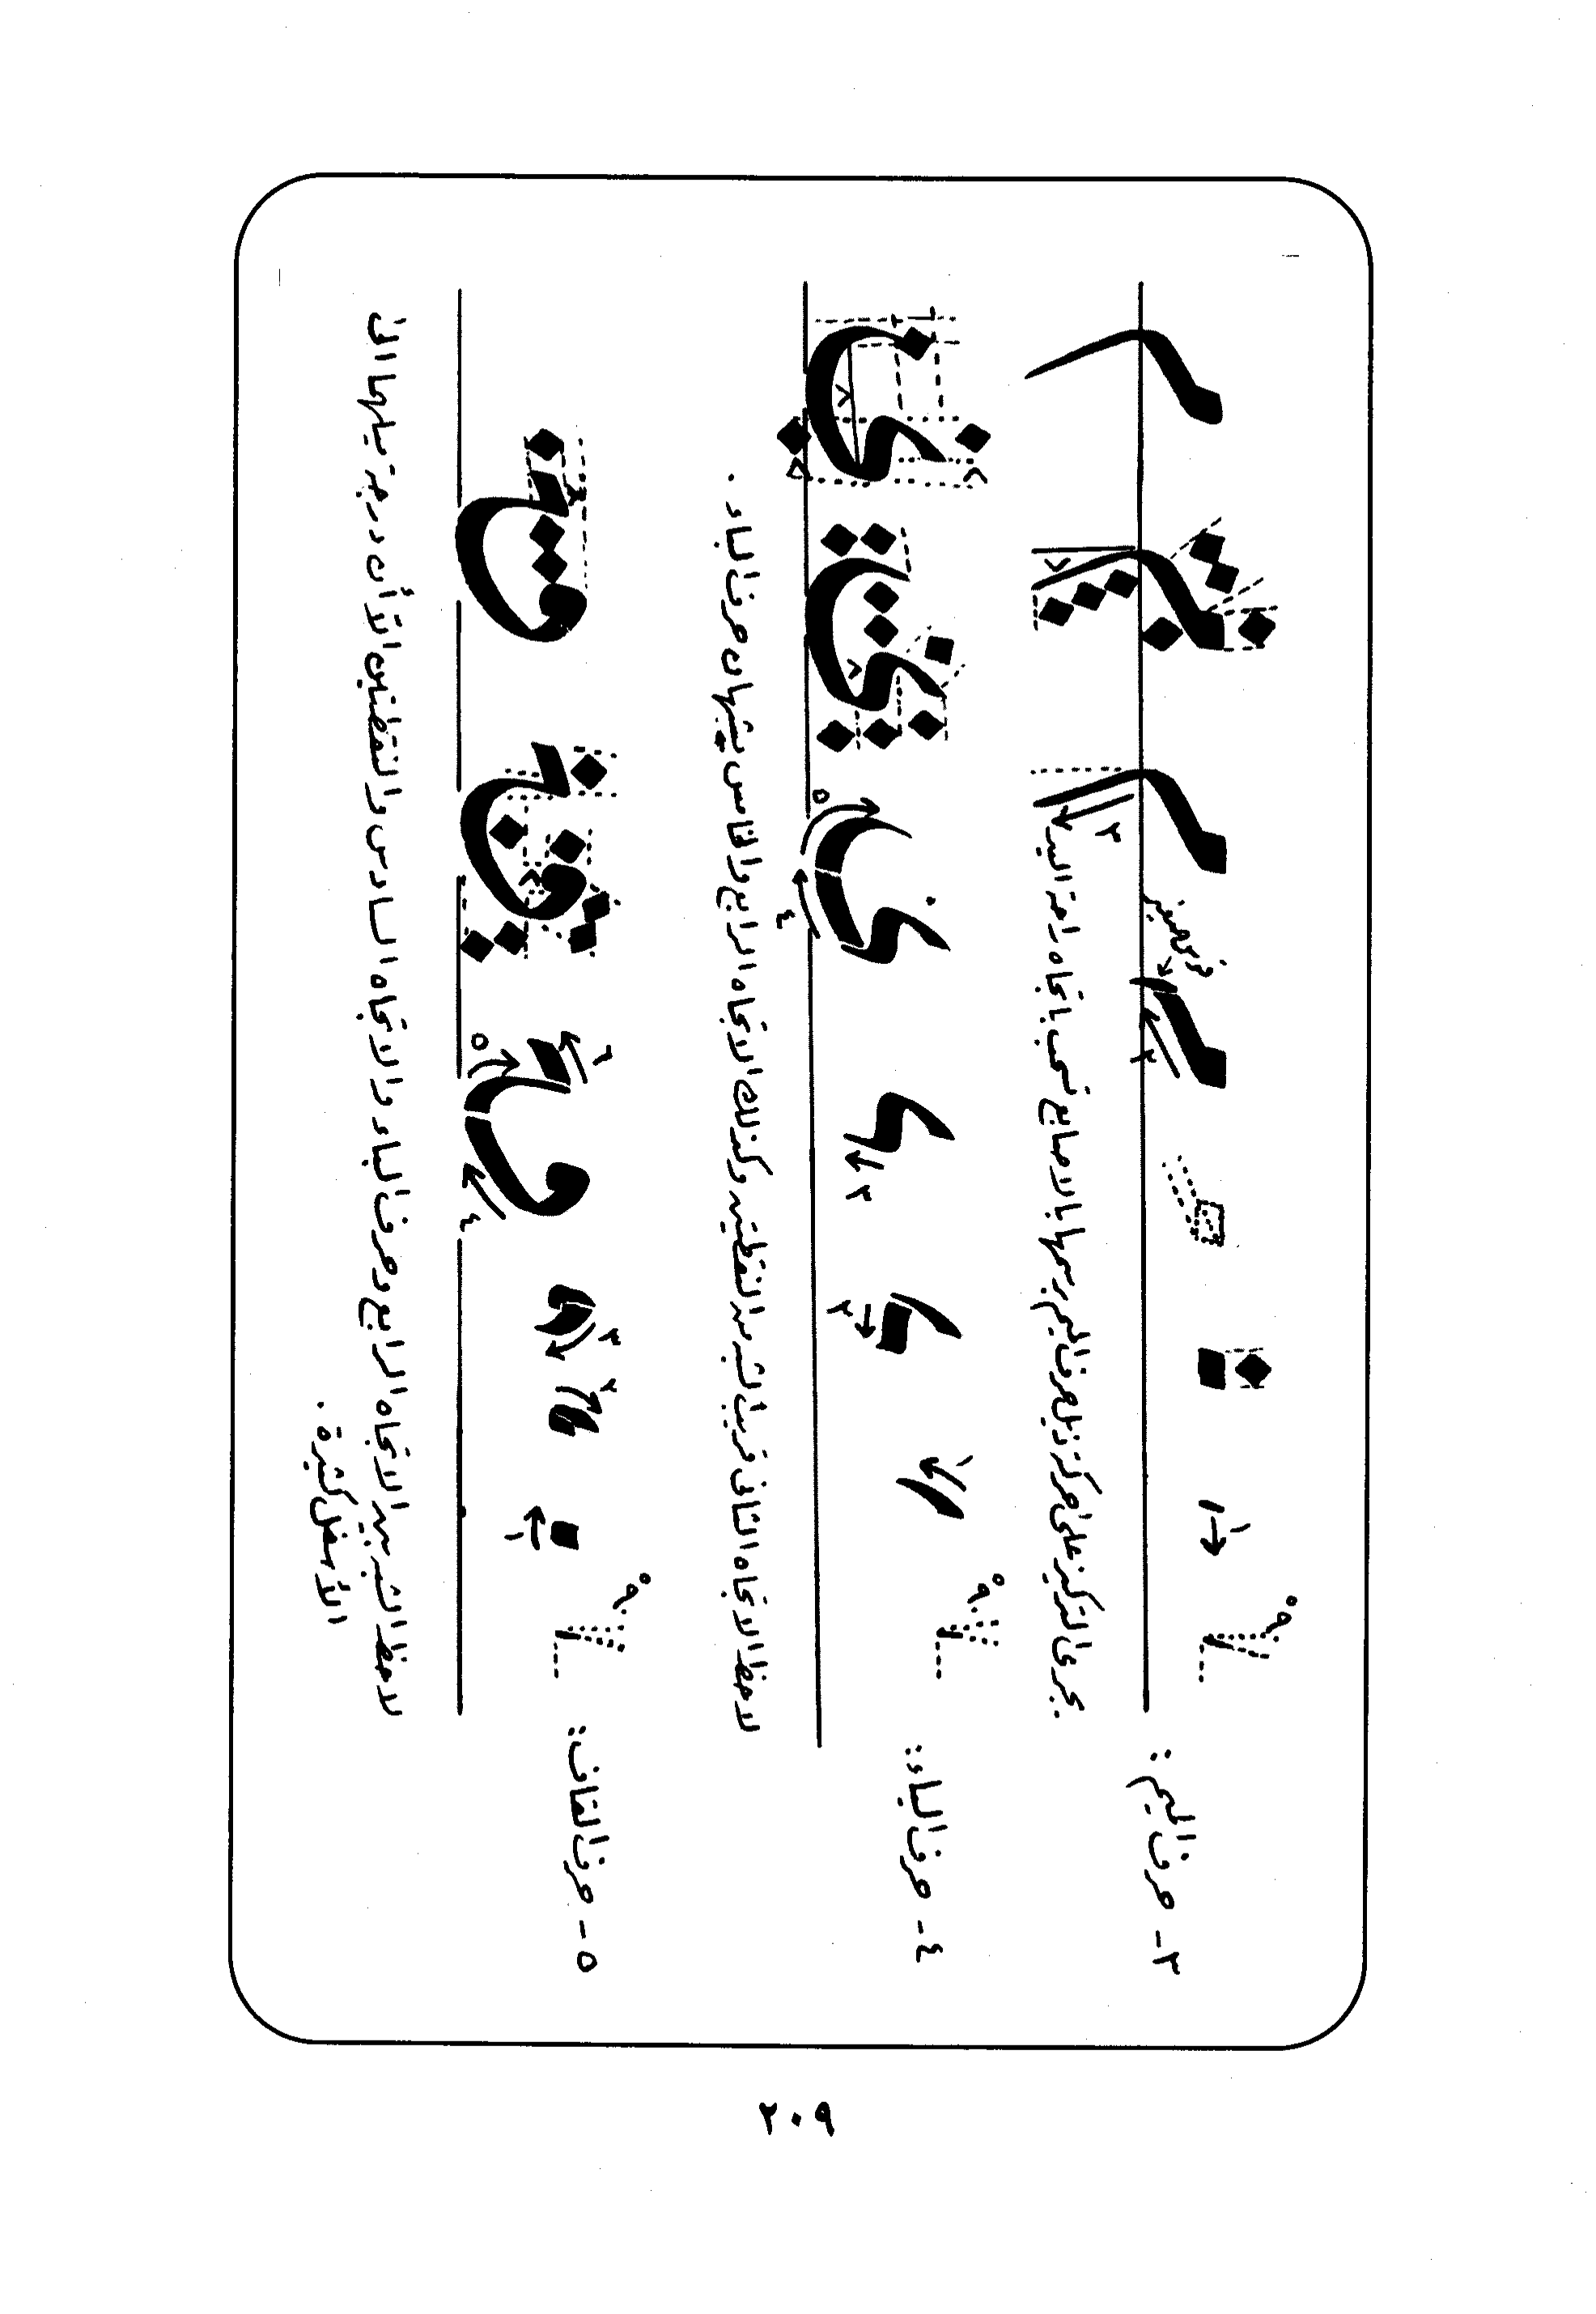 ٣- حرف الميم :
٩٠°
١
٢
قوس صغير
٣
٧
يجرى التركيز على حركة ذيل حرف الميم رسمها بالاصابع نحب باتجاه راحة اليد
٤- حرف الياء :
٩٠°
١
٢
٣
٤
٥
٧
٧
٧
لاحظ الاتجاه الثاني قريب الشبه بالنقطتين وكذلك الاتجاه الرابع والخامس يشبهان حرف الباء .
٥- حرف القاف :
٩٠°
١
٢
٣
٤
٥
٦
لاحظ الشبه بين الاتجاه الرابع وحرف الباء والاتجاه السادس والنقطتين الا أن درجة ميلها الى
الأسفل كبيرة .
٢٠٩